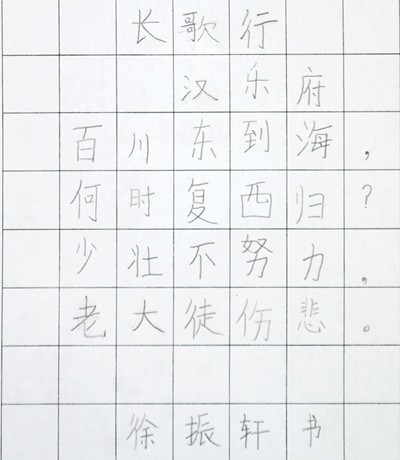 长歌行
汉乐府
百川东到海，
何时复西归？
少壮不努力，
老大徒伤悲。
徐振轩书